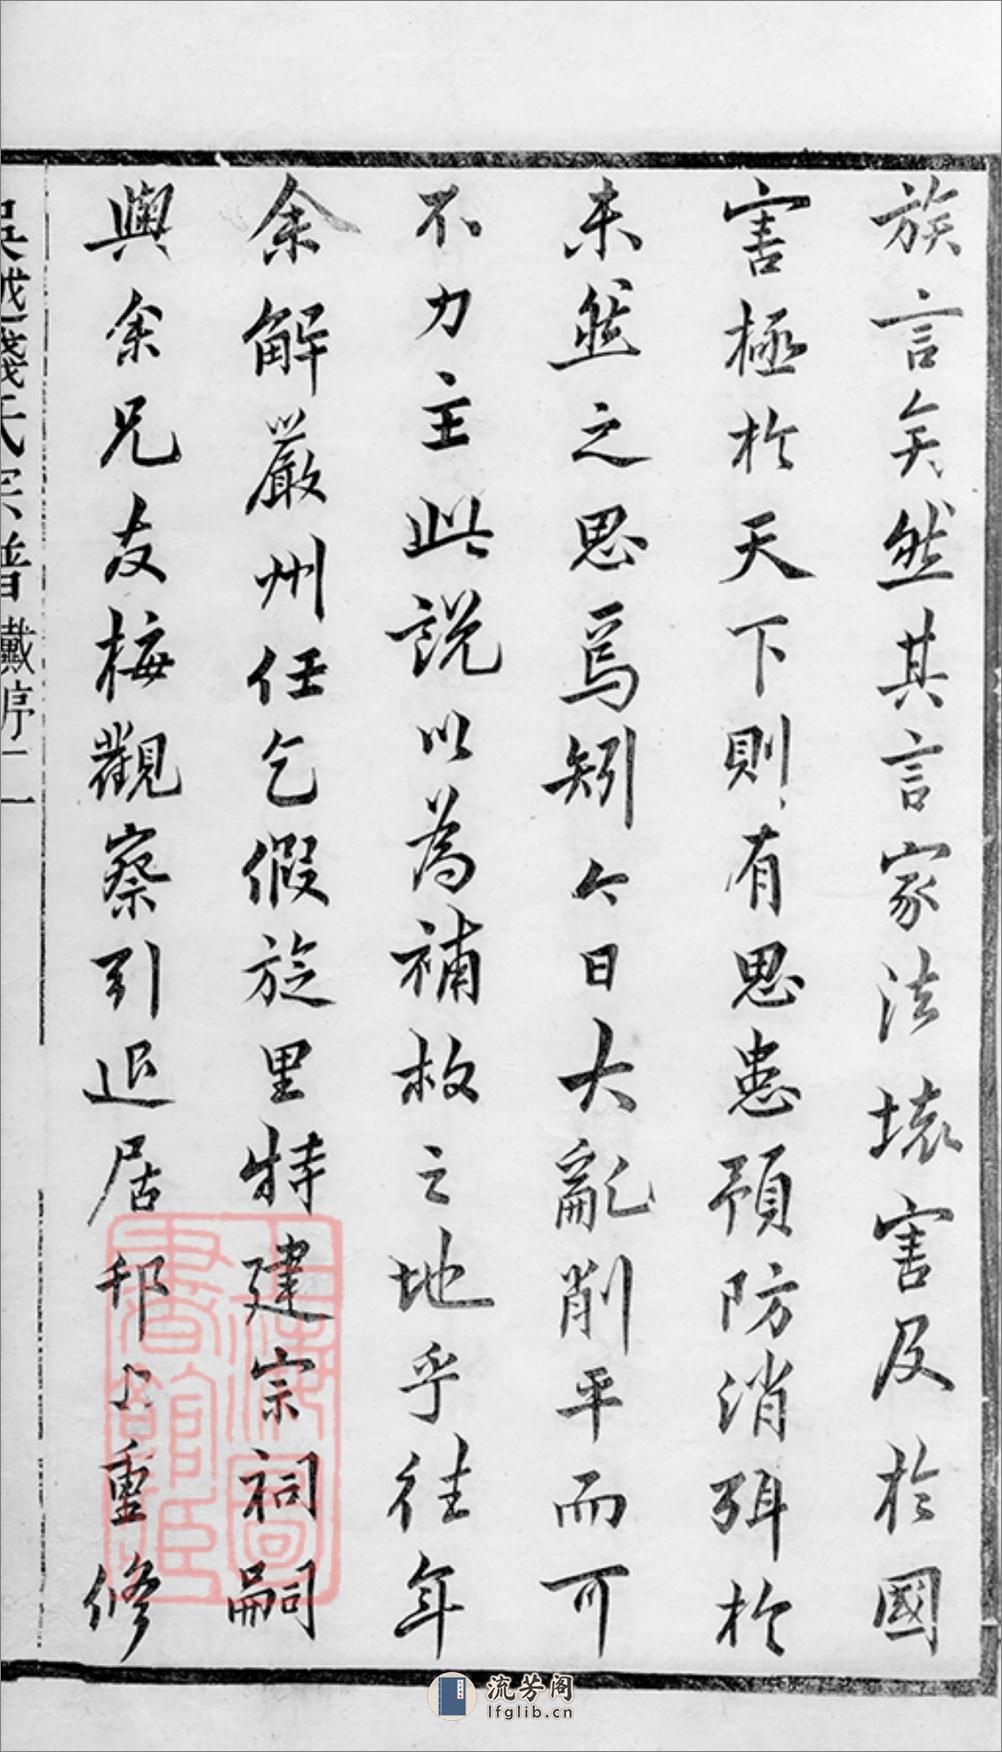 族言矣然其言家法壞害及於國
害極於天下則有思患預防消弭於
未然之思焉矧今日大亂削平而可
不力主此說以為補救之地乎往年
余解嚴州任乞假旋里特建宗祠嗣
與余兄友梅觀察引退居邗上重修
吳越錢氏宗譜 戴序 二
上海圖書館藏
流芳阁
lfglib.cn